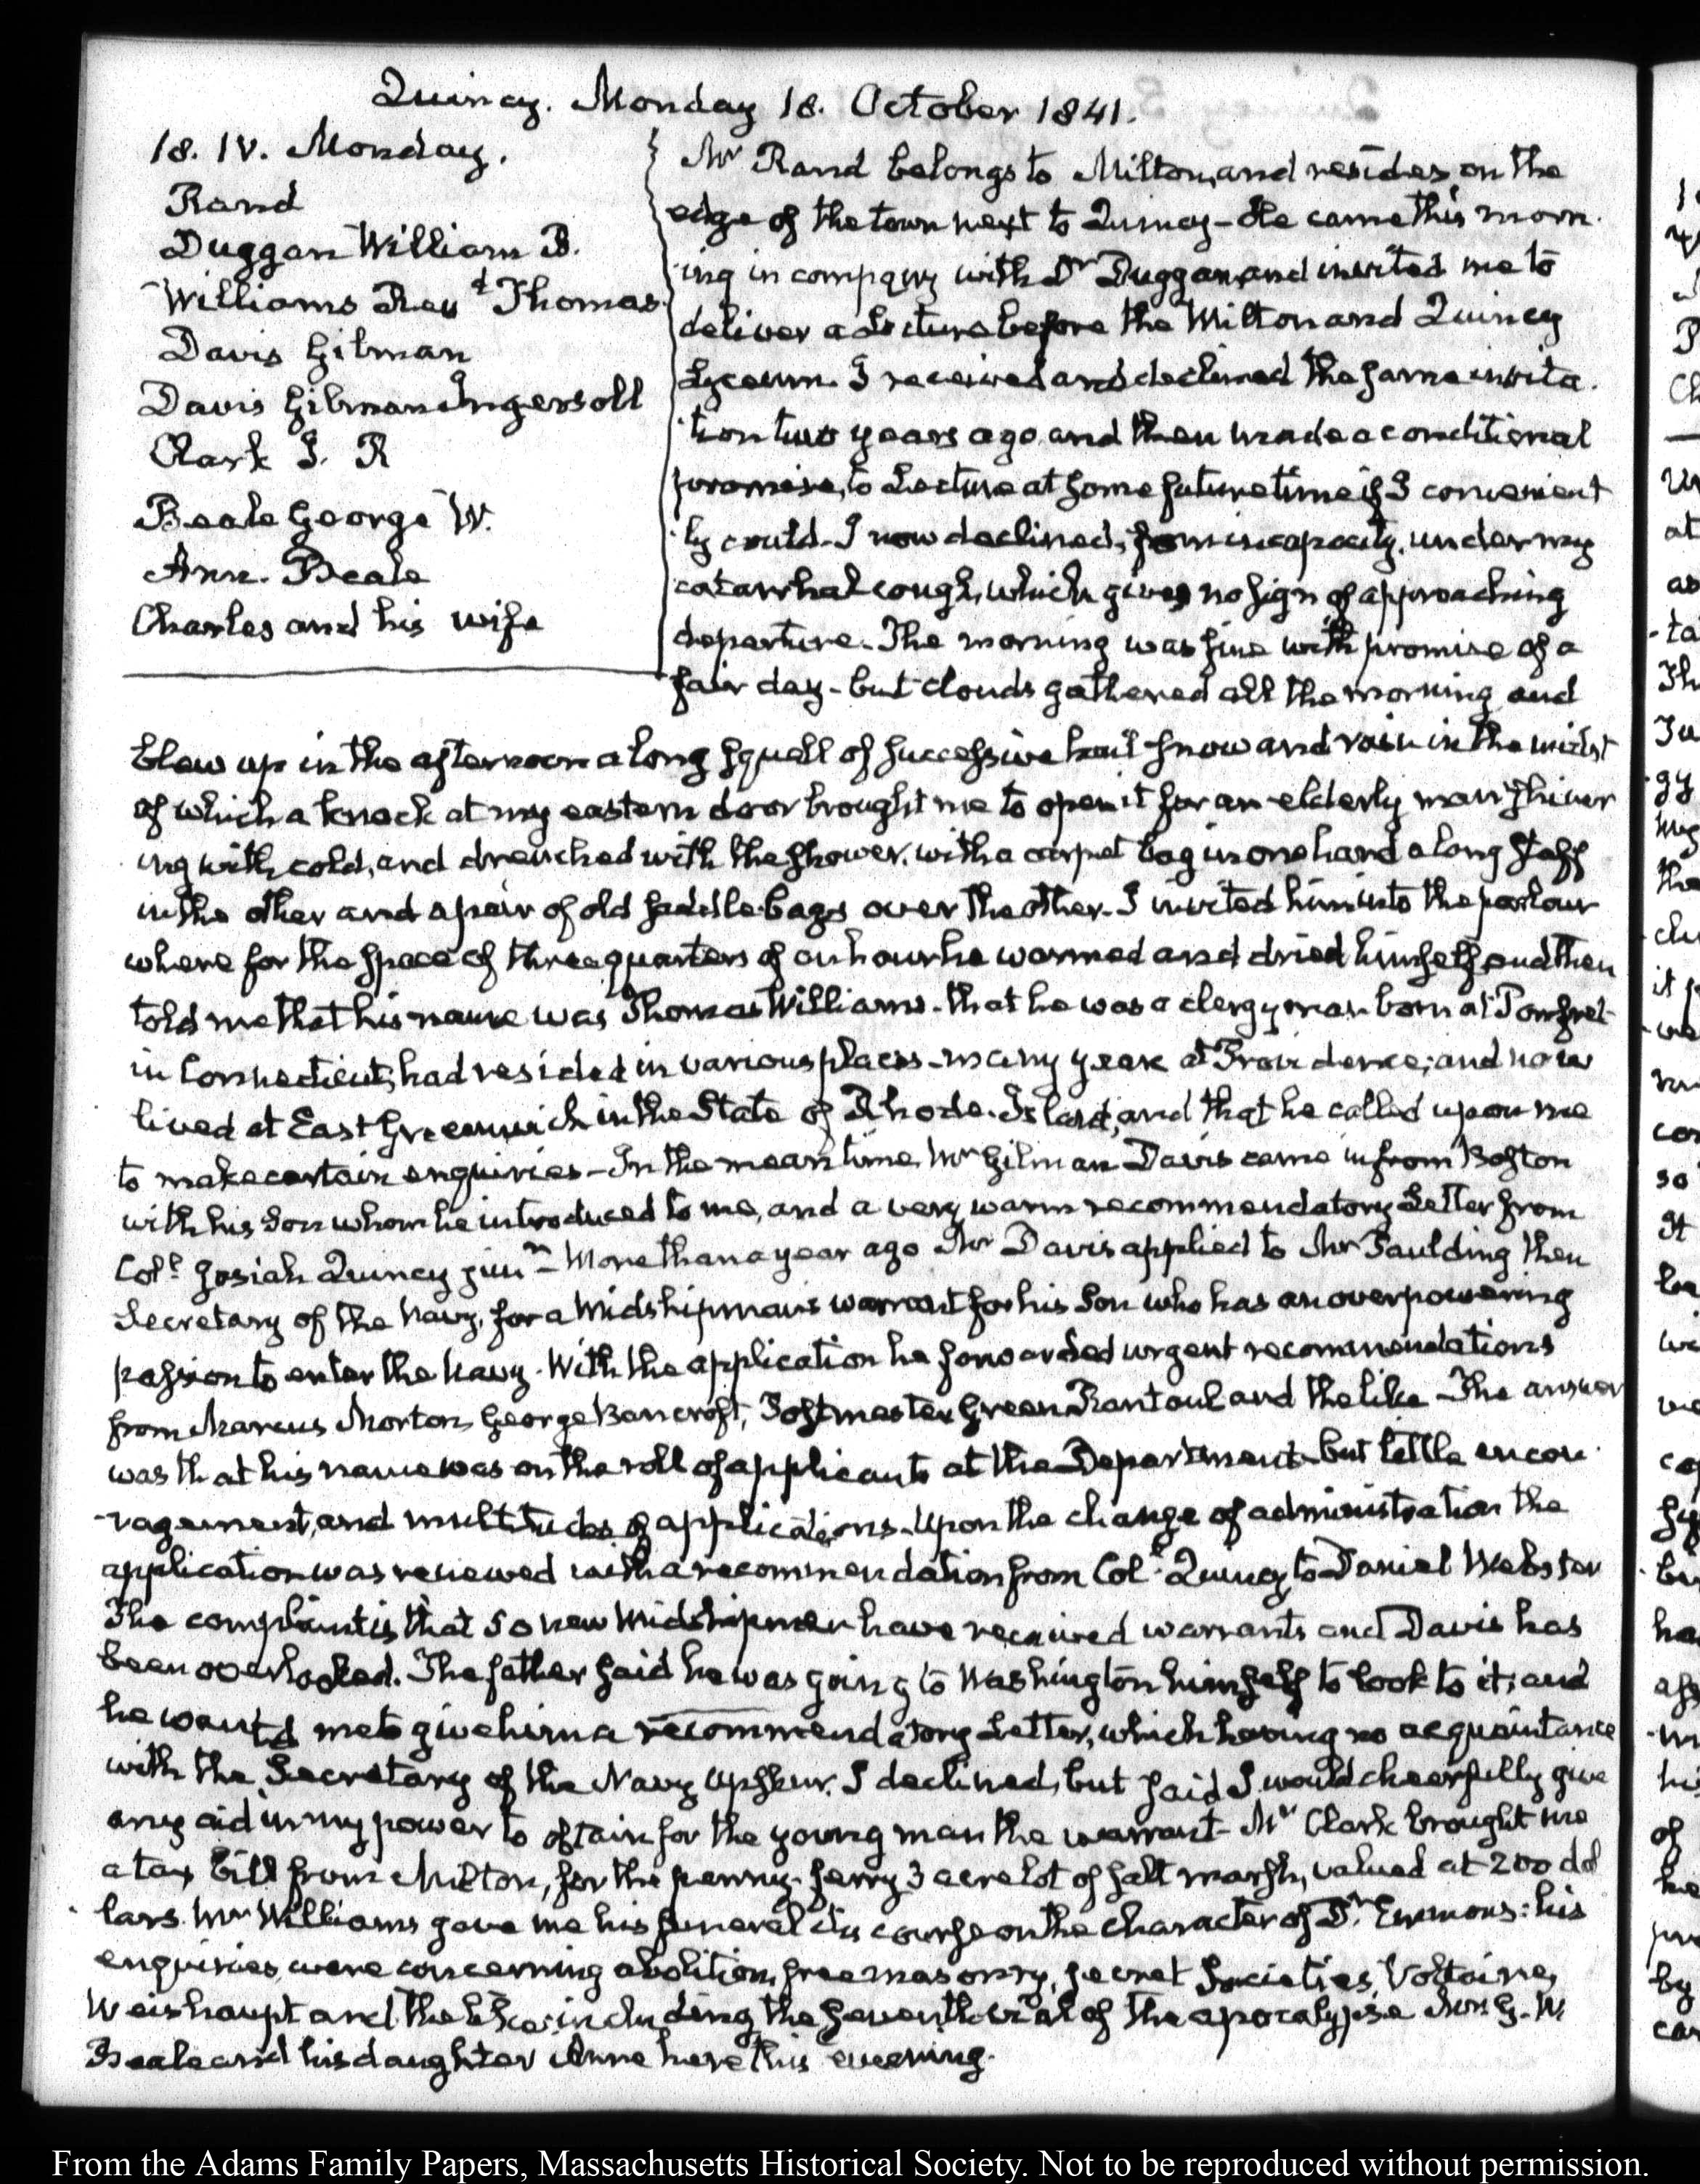 Quincy. Monday 18. October 1841.
18. IV. Monday.
Rand
Duggan William B.
Williams Revd Thomas
Davis Gilman
Davis Gilman Ingersoll
Clark J. R
Beale George W.
Ann. Beale
Charles and his wife
Mr Rand belongs to Milton, and resides on the
edge of the town next to Quincy - He came this morn-
ing in company with Dr Duggan, and invited me to
deliver a Lecture before the Milton and Quincy
Lyceum. I received and declined the same invita-
tion two years ago, and then made a conditional
promise, to Lecture at some future time if I convenient
ly could - I now declined, from incapacity, under my
catarrhal cough, which gives no sign of approaching
departure - The morning was fine with promise of a
fair day - but clouds gathered all the morning and
blew up in the afternoon a long squall of successive hail snow and rain in the midst
of which a knock at my eastern door brought me to open it for an elderly man shiver
ing with cold, and drenched with the shower, with a carpet bag in one hand a long staff
in the other and a pair of old saddle-bags over the other - I invited him into the parlour
where for the space of three quarters of an hour he warmed and dried himself and then
told me that his name was Thomas Williams - that he was a clergyman born at Pomfret
in Connecticut, had resided in various places - many years at Providence; and now
lived at East Greenwich in the State of Rhode-Island, and that he called upon me
to make certain enquiries - In the mean time, Mr Gilman Davis came in from Boston
with his Son whom he introduced to me, and a very warm recommendatory Letter from
Coll Josiah Quincy junr - More than a year ago Mr Davis applied to Mr Paulding then
Secretary of the Navy, for a Midshipman's warrant for his Son who has an overpowering
passion to enter the Navy. With the application he forwarded urgent recommendations
from Marcus Morton, George Bancroft, Postmaster Green Rantoul and the like - The answer
was that his name was on the roll of applicants at the Department - but little encou-
ragement, and multitudes of applications. Upon the change of administration the
application was renewed with a recommendation from Coll Quincy to Daniel Webster
The complaint is that 50 new Midshipmen have received warrants and Davis has
been overlooked. The father said he was going to Washington himself to look to it; and
he wanted me to give him a recommendatory Letter, which having no acquaintance
with the Secretary of the Navy Upshur, I declined, but said I would cheerfully give
any aid in my power to obtain for the young man the warrant - Mr Clark brought me
a tax bill from Milton, for the penny-ferry 3 acre lot of salt marsh, valued at 200 dol
lars. Mr Williams gave me his funeral discourse on the character of Dr Emmons: his
enquiries were concerning abolition, freemasonry, secret Societies, Voltaire,
Weishaupt and the like, including the seventh vial of the apocalypse Mr G. W
Beale and his daughter Anne here this evening.
From the Adams Family Papers, Massachusetts Historical Society. Not to be reproduced without permission.